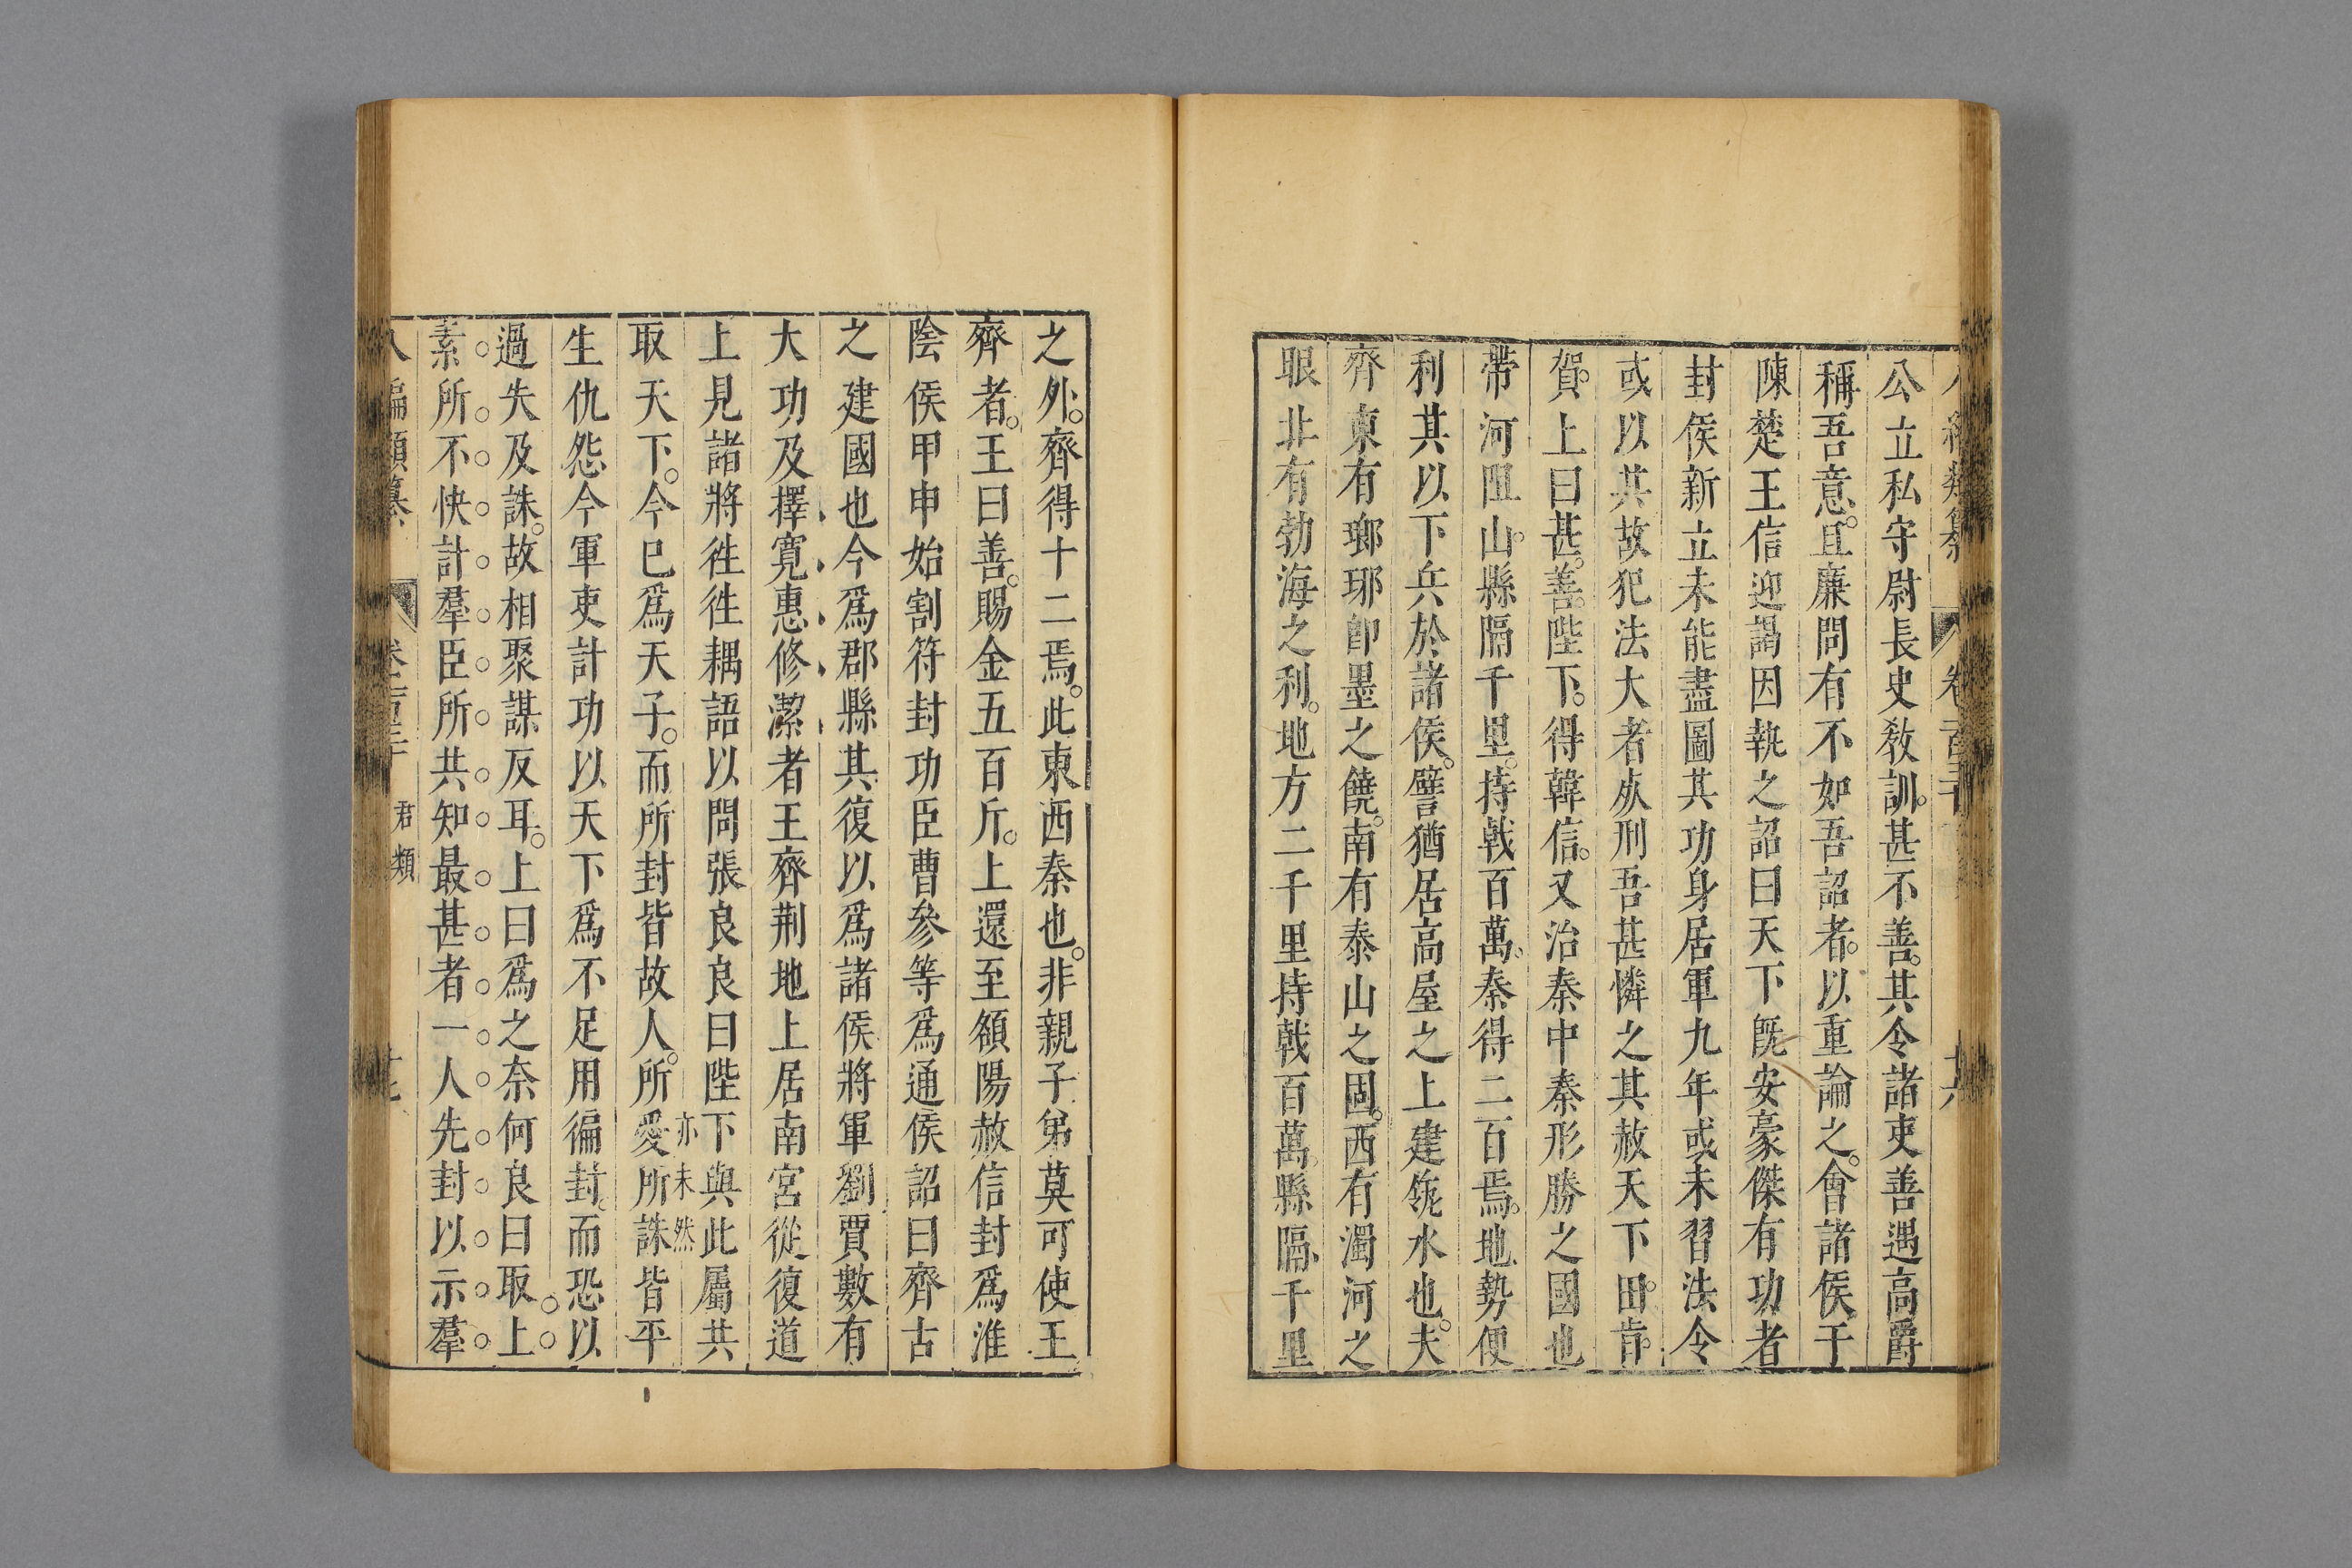 公立私守尉長史敎訓甚不善其令諸吏善遇高爵
稱吾意且廉問有不如吾詔者以重論之會諸侯于
陳楚王信迎謁因執之詔曰天下旣安豪傑有功者
封侯新立未能盡圖其功身居軍九年或未習法令
或以其故犯法大者死刑吾甚憐之其赦天下田肯
賀上曰甚善陛下得韓信又治秦中秦形勝之國也
帶河阻山縣隔千里持戟百萬秦得二百焉地勢便
利其以下兵於諸侯譬猶居高屋之上建瓴水也夫
齊東有瑯琊卽墨之饒南有泰山之固西有濁河之
限北有勃海之利地方二千里持戟百萬縣隔千里
之外齊得十二焉此東西秦也非親子弟莫可使王
齊者王曰善賜金五百斤上還至雒陽赦信封爲淮
陰侯甲申始割符封功臣曹參等爲通侯詔曰齊古
之建國也今爲郡縣其復以爲諸侯將軍劉賈數有
大功及擇寬惠修潔者王齊荆地上居南宮從復道
上見諸將徃徃耦語以問張良良曰陛下與此屬共
亦未然
取天下今巳爲天子而所封皆故人所愛所誅皆平
生仇怨今軍吏計功以天下爲不足用徧封而恐以
過失及誅故相聚謀反耳上曰爲之奈何良曰取上
素所不快計羣臣所共知最甚者一人先封以示羣
編類纂
君類